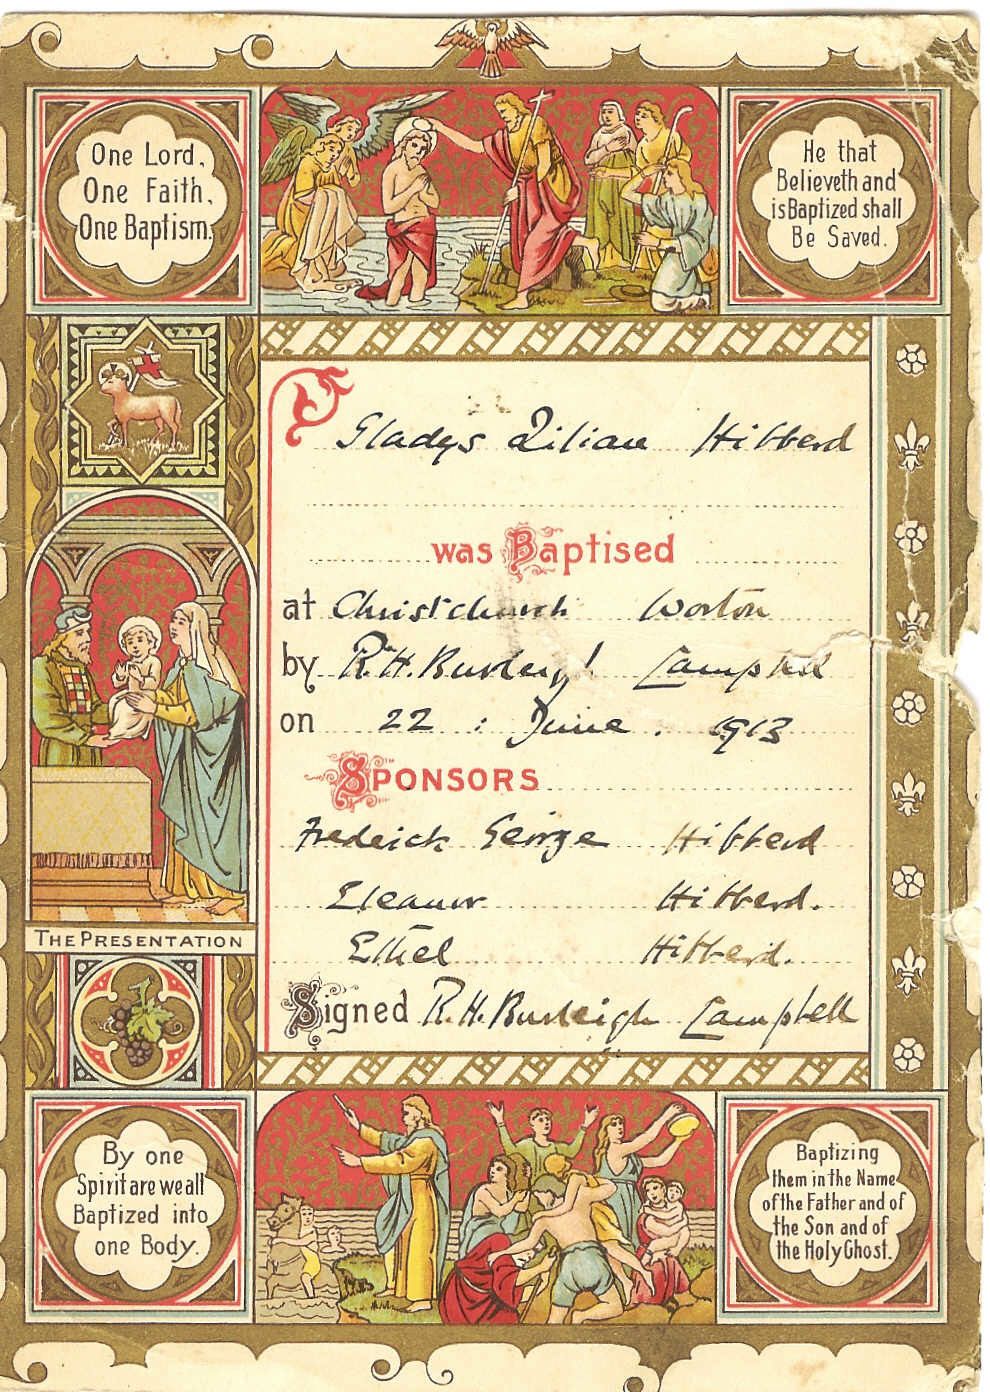 One Lord,
One Faith,
One Baptism.
He that
Believeth and
is Baptized shall
Be Saved.
Gladys Lilian Hibberd
was Baptised
at Christchurch Worton
by R. H. Burleigh Campbell
on 22 : June . 1913
SPONSORS
Frederick George Hibberd
Eleanor Hibberd.
Ethel Hibberd.
THE PRESENTATION
Signed R. H. Burleigh Campbell
By one
Spirit are we all
Baptized into
one Body.
Baptizing
them in the Name
of the Father and of
the Son and of
the Holy Ghost.